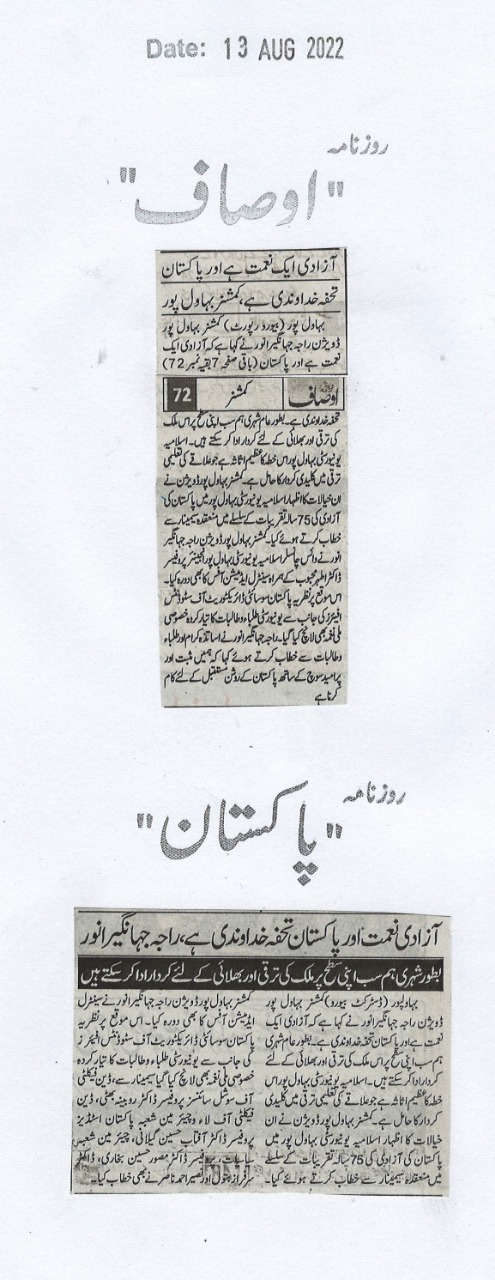 Date: 13 AUG 2022
روزنامہ
"اوصاف"
آزادی ایک نعمت ہے اور پاکستان
تحفہ خداوندی ہے، کمشنر بہاول پور
بہاول پور (بیورو رپورٹ) کمشنر بہاول پور
ڈویژن راجہ جہانگیر انور نے کہا ہے کہ آزادی ایک
نعمت ہے اور پاکستان (باقی صفحہ 7 بقیہ نمبر 72)
اوصاف کمشنر 72
تحفہ خداوندی ہے۔ بطور عام شہری ہم سب اپنی سطح پر اس ملک
کی ترقی اور بھلائی کے لئے کردار ادا کر سکتے ہیں۔ اسلامیہ
یونیورسٹی بہاول پور اس خطہ کا عظیم اثاثہ ہے جو علاقے کی تعلیمی
ترقی میں کلیدی کردار کا حامل ہے۔ کمشنر بہاول پور ڈویژن نے
ان خیالات کا اظہار اسلامیہ یونیورسٹی بہاول پور میں پاکستان کی
آزادی کی 75 سالہ تقریبات کے سلسلے میں منعقدہ سیمینار سے
خطاب کرتے ہوئے کیا۔ کمشنر بہاول پور ڈویژن راجہ جہانگیر
انور نے وائس چانسلر اسلامیہ یونیورسٹی بہاول پور انجینئر پروفیسر
ڈاکٹر اطہر محبوب کے ہمراہ سینٹرل ایڈمیشن آفس کا بھی دورہ کیا۔
اس موقع پر نظریہ پاکستان سوسائٹی ڈائریکٹوریٹ آف سٹوڈنٹس
افیئرز کی جانب سے یونیورسٹی طلباء و طالبات کا تیار کردہ خصوصی
ملی نغمہ بھی لانچ کیا گیا۔ راجہ جہانگیر انور نے اساتذہ کرام اور طلباء
و طالبات سے خطاب کرتے ہوئے کہا کہ ہمیں مثبت اور
پرامید سوچ کے ساتھ پاکستان کے روشن مستقبل کے لئے کام
کرنا ہے
روزنامہ
"پاکستان"
آزادی نعمت اور پاکستان تحفہ خداوندی ہے، راجہ جہانگیر انور
بطور شہری ہم سب اپنی سطح پر ملک کی ترقی اور بھلائی کے لئے کردار ادا کر سکتے ہیں
بہاولپور (ڈسٹرکٹ بیورو) کمشنر بہاول پور
ڈویژن راجہ جہانگیر انور نے کہا ہے کہ آزادی ایک
نعمت ہے اور پاکستان تحفہ خداوندی ہے۔ بطور عام شہری
ہم سب اپنی سطح پر اس ملک کی ترقی اور بھلائی کے لئے
کردار ادا کر سکتے ہیں۔ اسلامیہ یونیورسٹی بہاول پور اس
خطہ کا عظیم اثاثہ ہے جو علاقے کی تعلیمی ترقی میں کلیدی
کردار کا حامل ہے۔ کمشنر بہاول پور ڈویژن نے ان
خیالات کا اظہار اسلامیہ یونیورسٹی بہاول پور میں
پاکستان کی آزادی کی 75 سالہ تقریبات کے سلسلے
میں منعقدہ سیمینار سے خطاب کرتے ہوئے کیا۔
کمشنر بہاول پور ڈویژن راجہ جہانگیر انور نے سینٹرل
ایڈمیشن آفس کا بھی دورہ کیا۔ اس موقع پر نظریہ
پاکستان سوسائٹی ڈائریکٹوریٹ آف سٹوڈنٹس افیئرز
کی جانب سے یونیورسٹی طلباء و طالبات کا تیار کردہ
خصوصی ملی نغمہ بھی لانچ کیا گیا سیمینار سے، ڈین فیکلٹی
آف سوشل سائنسز پروفیسر ڈاکٹر روبینہ بھٹی، ڈین
فیکلٹی آف لاء و چیئر مین شعبہ پاکستان اسٹڈیز
پروفیسر ڈاکٹر آفتاب حسین گیلانی، چیئر مین شعبہ
پروفیسر ڈاکٹر مصور حسین بخاری، ڈاکٹر
سرفراز بتول اور نصیر احمد ناصر نے بھی خطاب کیا۔